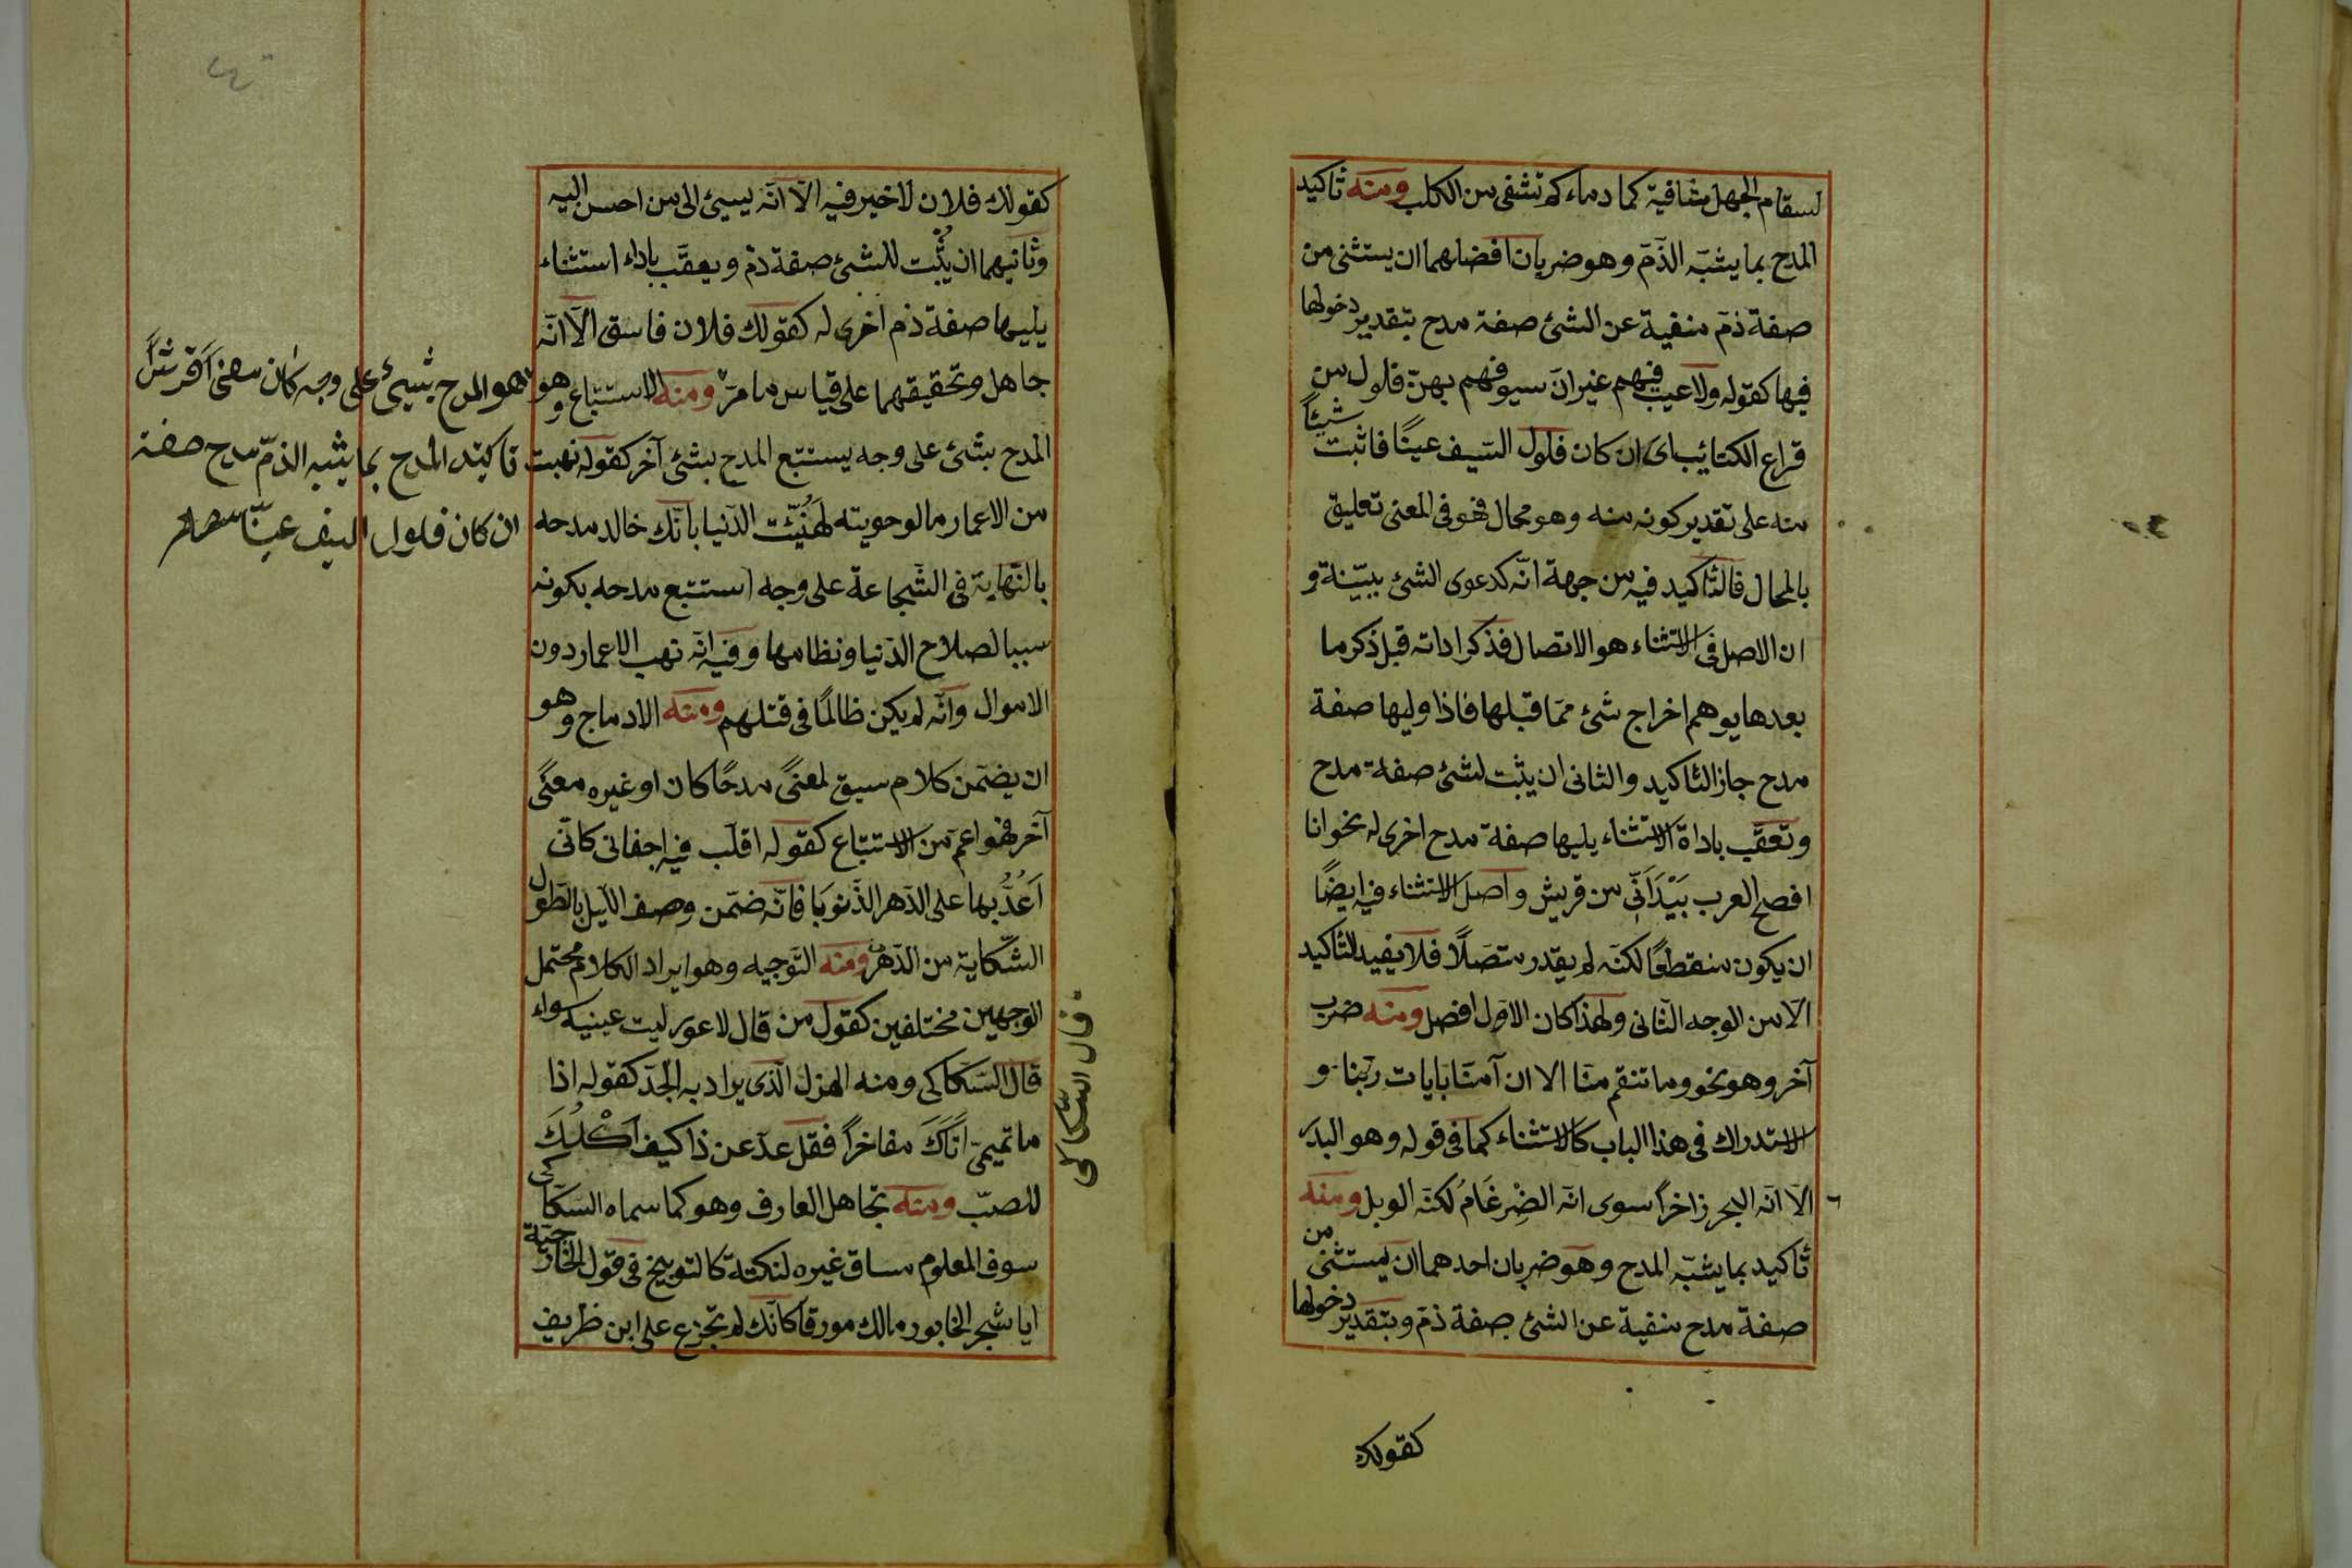 لسقام الجهل شافية كما دماءكم تشفى من الكلب ومنه تأكيد
المدح بما يشبّه الذّمّ وهو ضربان افضلهما ان يستثنى من
صفة ذمّ منفية عن الشئ صفة مدح بتقدير دخولها
فيها كقوله ولا عيب فيهم غير انّ سيوفهم بهنّ فلول من
قراع الكتائب اى ان كان فلول السّيف عيبًا فاثبت شيئًا
منه على تقدير كونه منه وهو محال فهو فى المعنى تعليق
بالمحال فالتّاكيد فيه من جهة انّه كدعوى الشئ ببيّنة و
ان الاصل فى الاستثناء هو الاتصال فذكر اداته قبل ذكر ما
بعدها يوهم اخراج شئ ممّا قبلها فاذا وليها صفة
مدح جاز التاكيد والثانى ان يثبت لشئ صفة مدح
وتعقّب باداة الاستثناء يليها صفة مدح اخرى له نحو انا
افصح العرب بَيْدَ اَنّى من قريش واصل الاستثناء فيه ايضًا
ان يكون منقطعًا لكنّه لم يقدر متصلًا فلا يفيد التّاكيد
الّا من الوجه الثّانى ولهذا كان الاوّل افضل ومنه ضرب
آخر وهو نحو وما تنقم منّا الا ان آمنّا بايات ربّنا و
الاستدراك فى هذا الباب كالاستثناء كما فى قوله وهو البدر
الّا انّه البحر زاخرًا سوى انّه الضِّرغَامُ لكنّه الوبل ومنه
تأكيد بما يشبّه المدح وهو ضربان احدهما ان يستثنى من
صفة مدح منفية عن الشئ صفة ذمّ وبتقدير دخولها
كقولك
كقولك فلان لا خير فيه الّا انّه يسيئ الى من احسن اليه
وثانيهما ان يثبت للشئ صفة ذمّ ويعقّب باداء استثناء
يليها صفة ذم اخرى له كقولك فلان فاسق الّا انّه
جاهل وتحقيقهما على قياس ما مرّ ومنه الاستتباع وهو
المدح بشئ على وجه يستتبع المدح بشئ آخر كقوله نهبت
من الاعمار ما لو حويته لهُنِّئت الدّنيا بانّك خالد مدحه
بالنّهاية فى الشّجاعة على وجه استتبع مدحه بكونه
سببا لصلاح الدّنيا ونظامها وفيه انّه نهب الاعمار دون
الاموال وانّه لم يكن ظالمًا فى قتلهم ومنه الادماج وهو
ان يضمّن كلام سيق لمعنًى مدحًا كان او غيره معنًى
آخر فهو اعمّ من الاستتباع كقوله اقلّب فيه اجفانى كانّى
اَعُدُّ بها على الدّهر الذّنوبَا فانّه ضمّن وصف اللّيل بالطّول
الشّكاية من الدّهر ومنه التّوجيه وهو ايراد الكلام محتمل
الوجهين مختلفين كقول من قال لاعور ليت عينيه سواء
قال السّكاكى ومنه الهزل الّذى يراد به الجدّ كقوله اذا
ما تميمىّ اتاكَ مفاخرًا فقل عدّ عن ذا كيف اَكْلُكَ
للضبّ ومنه تجاهل العارف وهو كما سماه السّكاكى
سوق المعلوم مساق غيره لنكتة كالتوبيخ فى قول الخارجيّة
ايا شجر الخابور مالك مورقًا كانّك لم تجزع على ابن ظريف
هو المدح بشيئ على وجه كان
تاكيد المدح بما يشبه الذمّ مدح صفة
ان كان فلول السيف عيبًا
قال السّكاكى